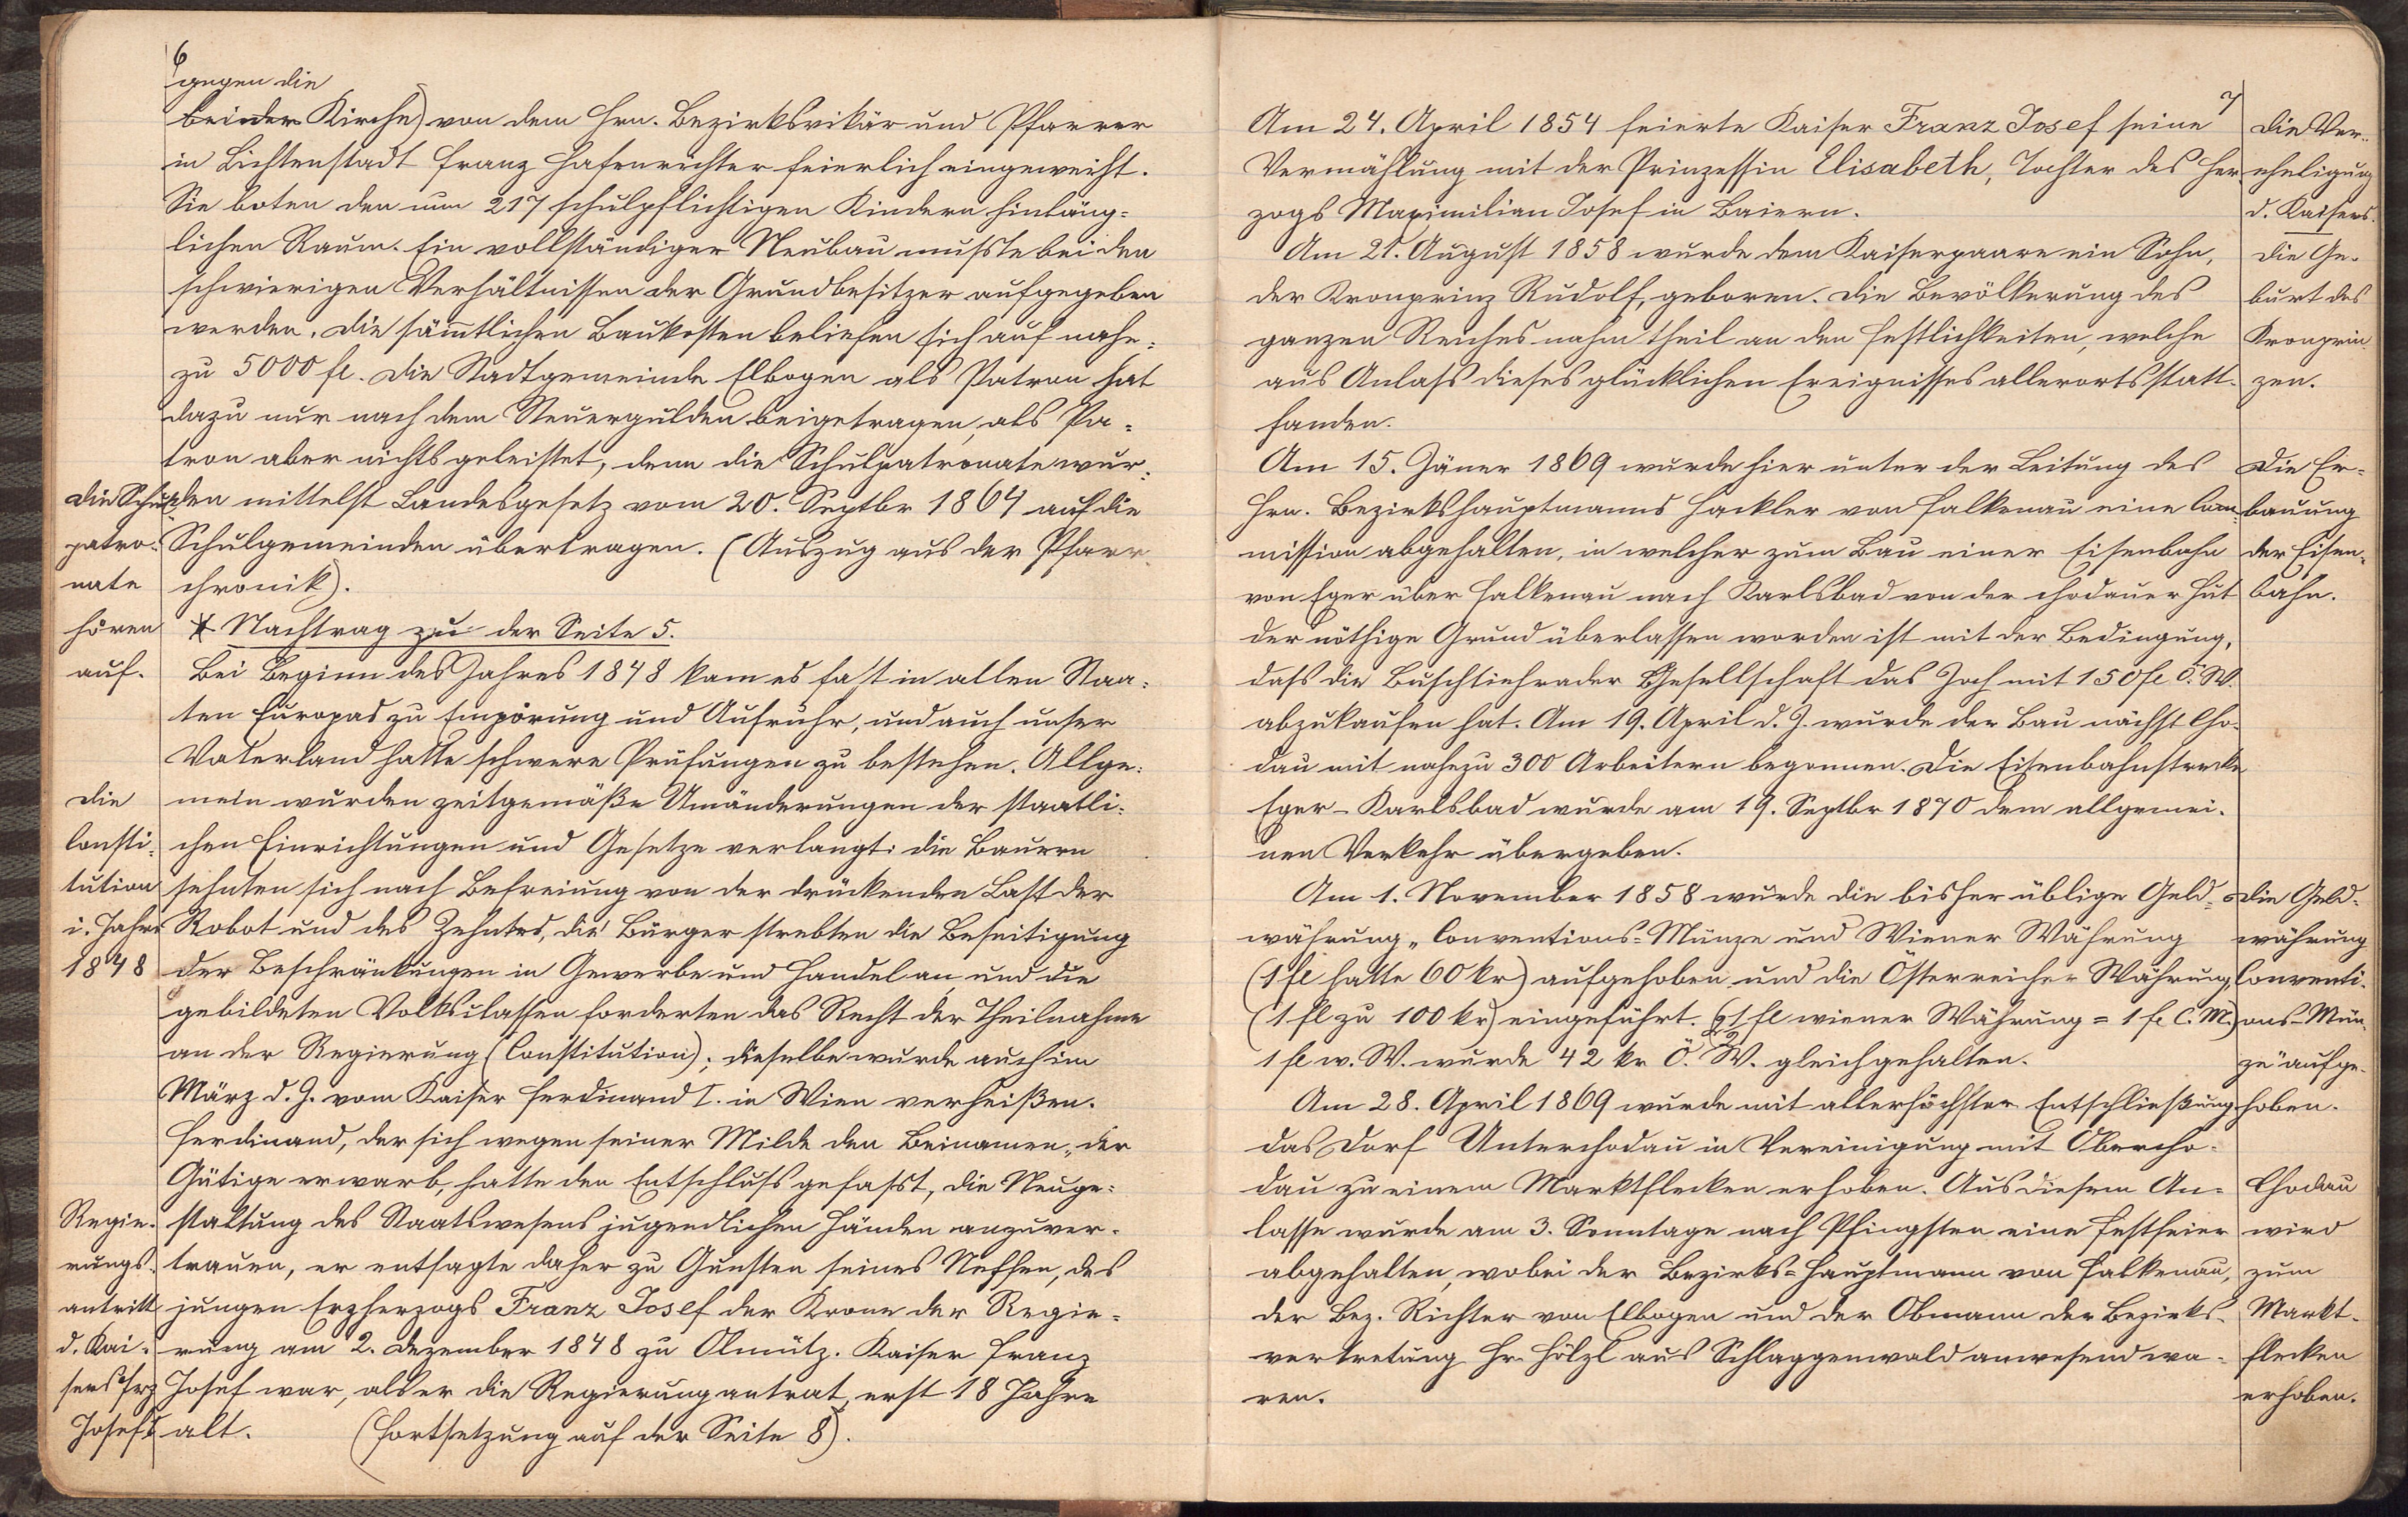 6
gegen die
bei der Kirche) von dem Hrn. Bezirksvikär und Pfarrer
in Lichtenstadt Franz Hafenrichter feierlich eingeweiht.
Sie boten den nun 217 schulpflichtigen Kindern hinläng=
lichen Raum. Ein vollständiger Neubau musste bei den
schwierigen Verhältnissen der Grundbesitzer aufgegeben
werden. Die sämmtlichen Baukosten beliefen sich auf nahe=
zu 5000 fl. Die Stadtgemeinde Elbogen als Patron hat
dazu nur nach dem Steuergulden beigetragen, als Pa=
tron aber nichts geleistet, denn die Schulpatronate wur=
den mittelst Landesgesetz vom 20. Septbr 1864 auf die
Schulgemeinden übertragen. (Auszug aus der Pfarr
chronik).
Die Schul
patro=
nate
hören
auf.
* Nachtrag zu der Seite 5.
Bei Beginn des Jahres 1848 kam es fast in allen Staa=
ten Europas zu Empörung und Aufruhr, und auch unser
Vaterland hatte schwere Prüfungen zu bestehen. Allge=
mein wurden zeitgemäße Umänderungen der staatli=
chen Einrichtungen und Gesetze verlangt: die Bauern
sehnten sich nach Befreiung von der drückenden Last der
Robot und des Zehntes, die Bürger strebten die Beseitigung
der Beschränkungen in Gewerbe und Handel an, und die
gebildeten Volksclassen forderten das Recht der Theilnahme
an der Regierung (Constitution); dieselbe wurde auch im
März d. J. vom Kaiser Ferdinand I. in Wien verheißen.
Die
Consti=
tution
i. Jahre
1848
Ferdinand, der sich wegen seiner Milde den Beinamen „der
Gütige erwarb, hatte den Entschluss gefasst, die Neuge=
staltung des Staatswesens jugendlichen Händen anzuver=
trauen, er entsagte daher zu Gunsten seines Neffen, des
jungen Erzherzogs Franz Josef der Krone der Regie=
rung am 2. Dezember 1848 zu Olmütz. Kaiser Franz
Josef war, als er die Regierung antrat, erst 18 Jahre
alt. (Fortsetzung auf der Seite 8).
Regie=
rungs=
antritt
d. Kai=
sers Frz
Josefs
7
Am 24. April 1854 feierte Kaiser Franz Josef seine
Vermählung mit der Prinzessin Elisabeth, Tochter des Her=
zogs Maximilian Josef in Baiern.
Die Ver=
eheligung
d. Kaisers.
Am 21. August 1858 wurde dem Kaiserpaare ein Sohn,
der Kronprinz Rudolf, geboren. Die Bevölkerung des
ganzen Reiches nahm theil an den Festlichkeiten, welche
aus Anlass dieses glücklichen Ereignisses allerorts statt=
fanden.
Die Ge=
burt des
Kronprin
zen.
Am 15. Jäner 1869 wurde hier unter der Leitung des
Hrn. Bezirkshauptmanns Hackler von Falkenau eine Com=
mission abgehalten, in welcher zum Bau einer Eisenbahn
von Eger über Falkenau nach Karlsbad von der chodauer Hut
der nöthige Grund überlassen worden ist mit der Bedingung,
dass die Buschtiehrader Gesellschaft das Joch mit 150 fl Ö. W.
abzukaufen hat. Am 19. April d. J. wurde der Bau nächst Cho=
dau mit nahezu 300 Arbeitern begonnen. Die Eisenbahnstrecke
Eger - Karlsbad wurde am 19. Septbr 1870 dem allgemei=
nen Verkehr übergeben.
Die Er=
bauung
der Eisen=
bahn.
Am 1. November 1858 wurde die bisher üblige Geld=
währung „Conventions=Münze und Wiener Währung
(1 fl hatte 60 kr) aufgehoben und die Österreicher Währung
(1 fl zu 100 kr) eingeführt. (2½ fl wiener Währung = 1 fl C. M.)
1 fl w. W. wurde 42 kr Ö. W. gleichgehalten.
Die Geld=
währung
Conventi=
ons=Mün
ze" aufge=
hoben.
Am 28. April 1869 wurde mit allerhöchster Entschließung
das Dorf Unterchodau in Vereinigung mit Obercho=
dau zu einem Marktflecken erhoben. Aus diesem An=
lasse wurde am 3. Sonntage nach Pfingsten eine Festfeier
abgehalten, wobei der Bezirks=Hauptmann von Falkenau,
der Bez. Richter von Elbogen und der Obmann der Bezirks=
vertretung Hr. Hölzl aus Schlaggenwald anwesend wa=
ren.
Chodau
wird
zum
Markt=
flecken
erhoben.